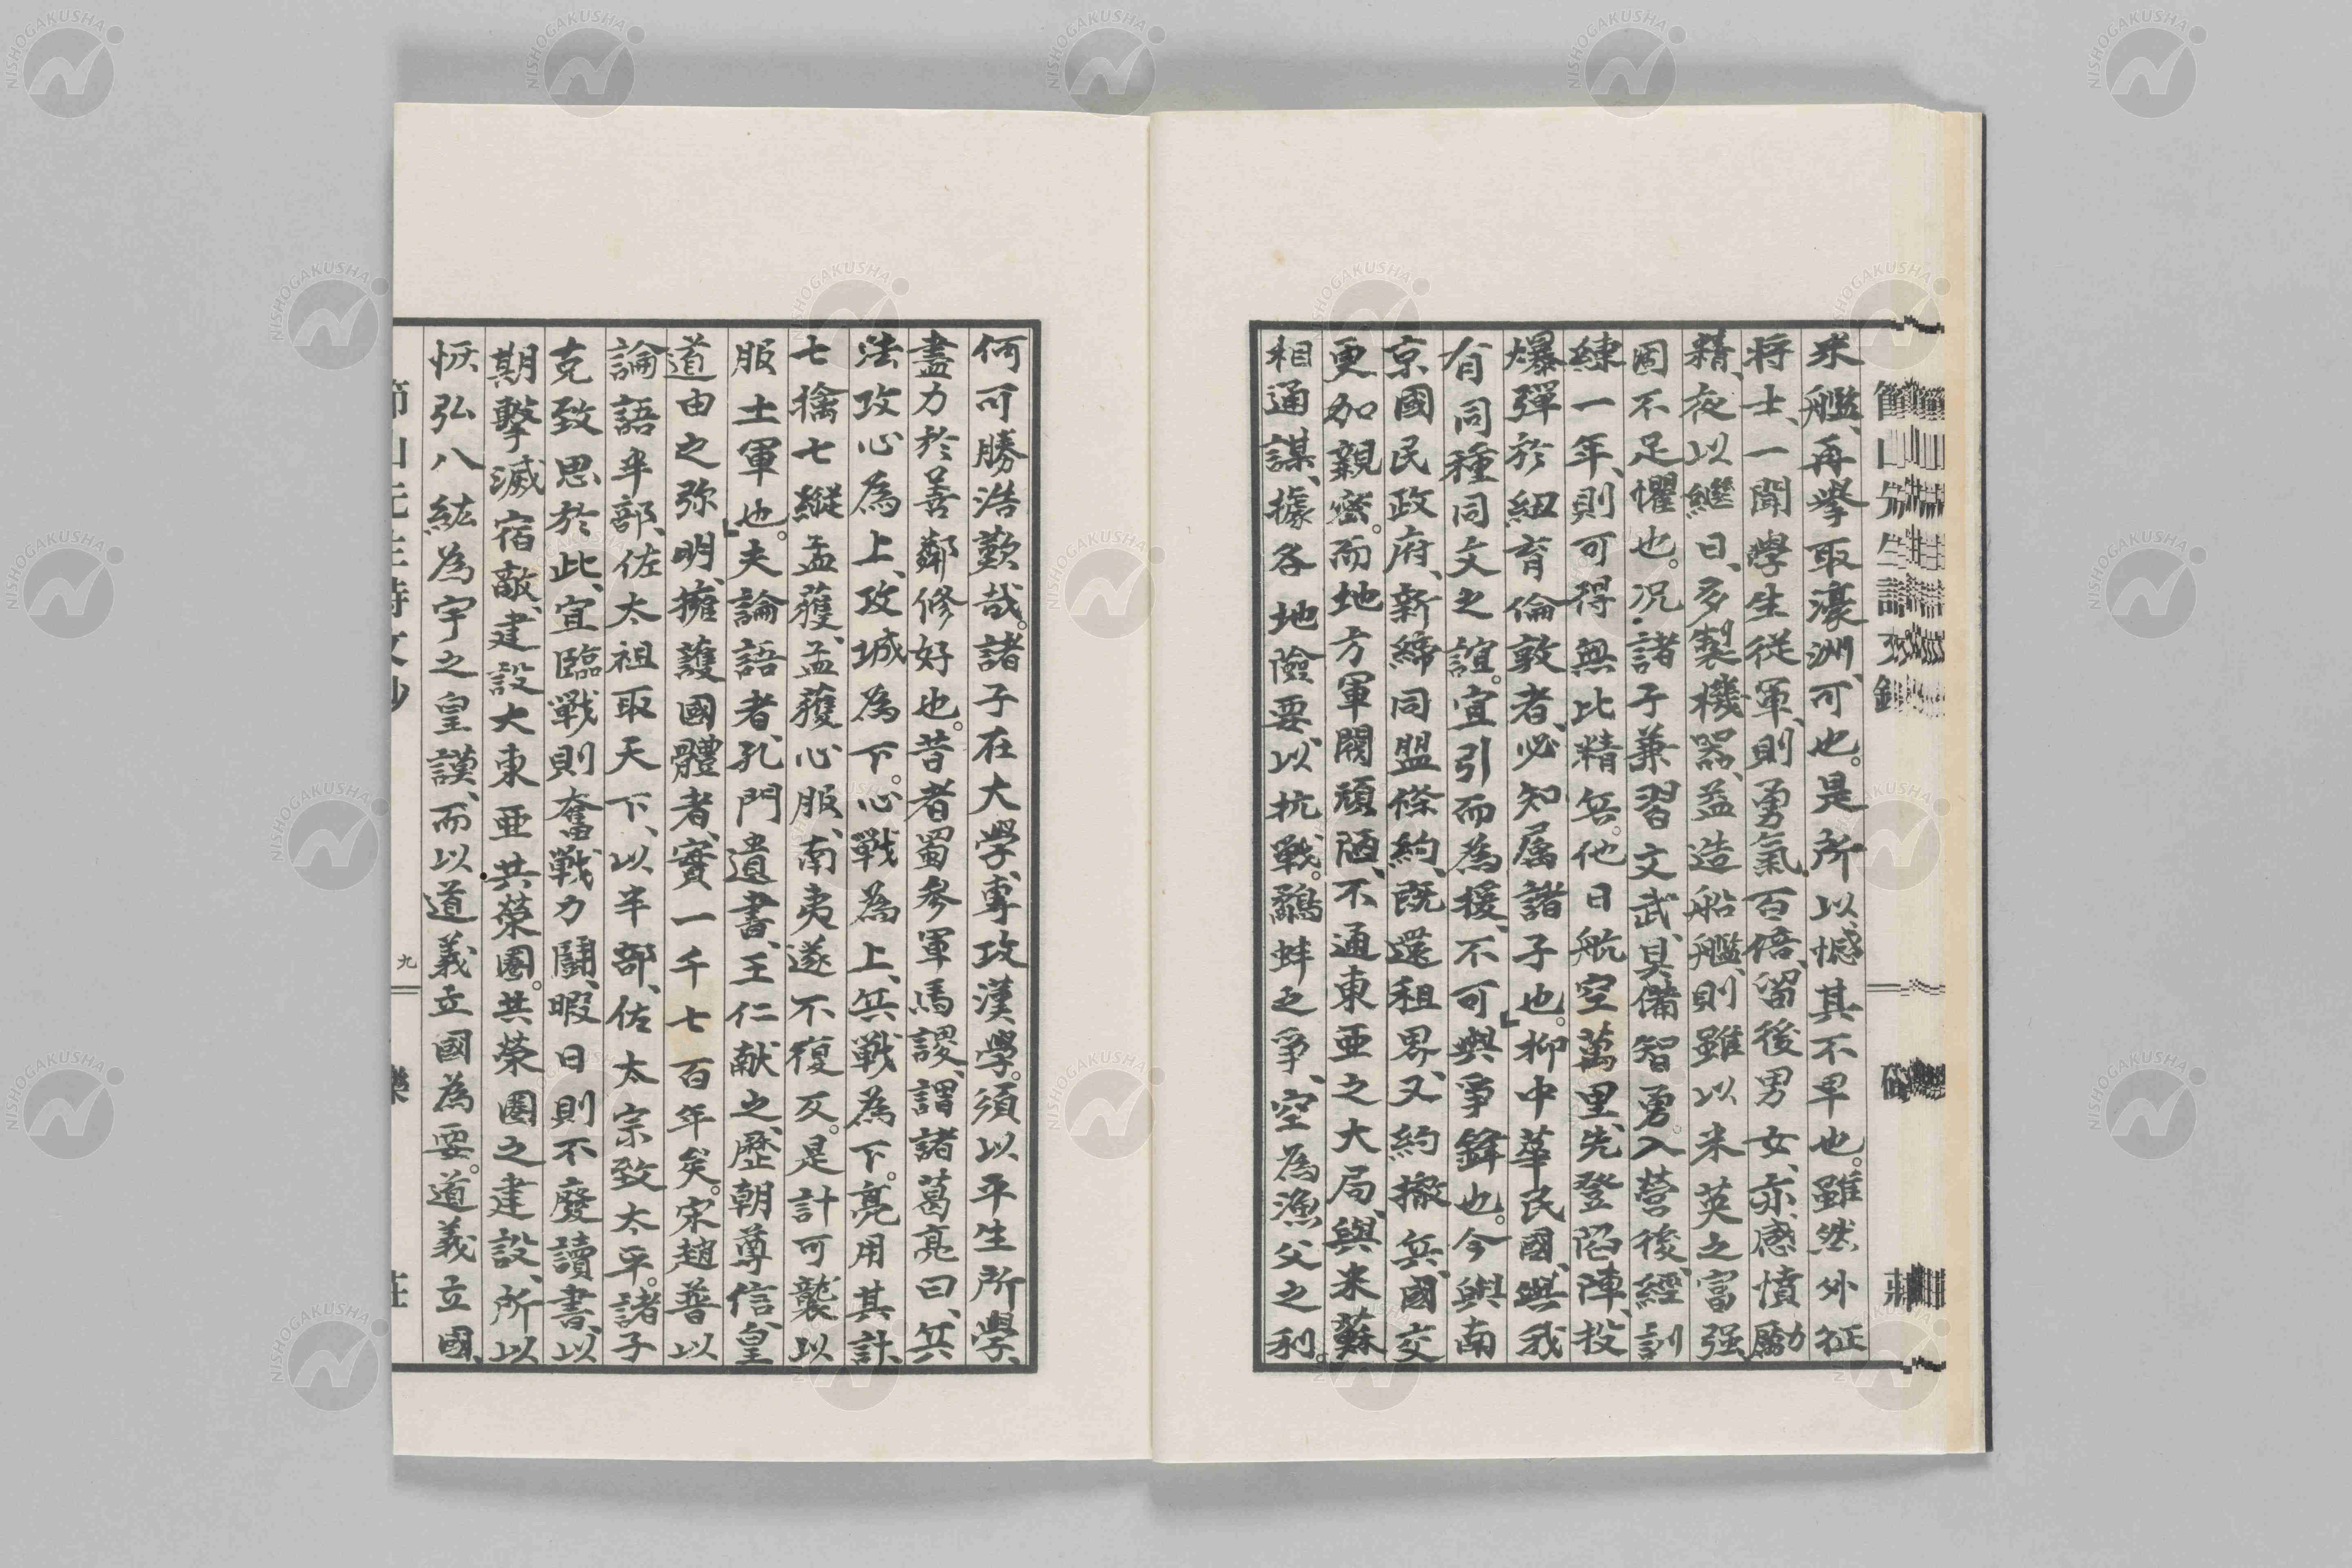 来艦、再擧取濠洲、可也。是所以憾其不早也。雖然外征
将士、一聞學生従軍、則勇氣百倍、留後男女、亦感憤勵
精、夜以継日、多製機器、益造船艦、則雖以米英之富强
固不足懼也。况諸子兼習文武、具備智勇。入營後、經訓
練一年、則可得無比精兵。他日航空萬里、先登陷陣、投
爆彈於紐育倫敦者、必知属諸子也。」抑中華民國、與我
有同種同文之誼。宜引而為援、不可與爭鋒也。今與南
京國民政府、新締同盟條約、既還租界、又約撤兵、國交
更加親密。而地方軍閥頑陋、不通東亜之大局、與米蘇
相通謀、據各地險要、以抗戰。鷸蚌之爭、空為漁父之利。
何可勝浩歎哉。諸子在大學、專攻漢學。須以平生所學、
盡力於善鄰修好也。昔者蜀參軍馬謖、謂諸葛亮曰、兵
法攻心為上、攻城為下。心戰為上、兵戰為下。亮用其計、
七擒七縱孟獲、孟獲心服、南夷遂不復反。是計可襲以
服土軍也。」夫論語者、孔門遺書、王仁献之、歷朝尊信、皇
道由之弥明、擁護國體者、實一千七百年矣。宋趙普以
論語半部、佐太祖取天下、以半部、佐太宗致太平。諸子
克致思於此、宜臨戰則奮戰力鬪、暇日則不廢讀書、以
期擊滅宿敵、建設大東亜共榮圏。共榮圏之建設、所以
恢弘八紘為宇之皇謨、而以道義立國為要。道義立國、
九